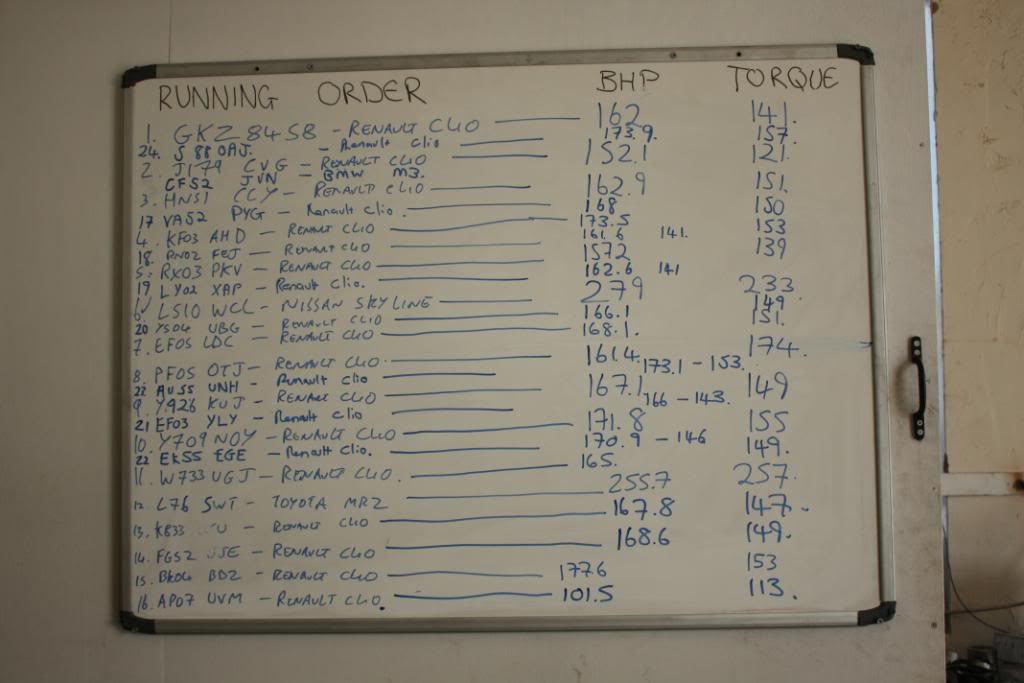 RUNNING ORDER BHP TORQUE
1. GKZ 8458 - RENAULT CLIO 162 141.
24. S 88 OAJ. - Renault Clio 173.9. 157.
2. J179 CVG - RENAULT CLIO 152.1 121.
CF52 JVN - BMW M3.
3. HN51 CCY - RENAULT CLIO 162.9 151.
17 VA52 PYG - Renault Clio. 168 150
4. KF03 AHD - RENAULT CLIO 173.5 153
18. PN02 FEJ - RENAULT CLIO 161.6 141.
5. RX03 PKV - RENAULT CLIO 157.2 139
19 LY02 XAP - Renault Clio. 162.6 141
6. LS10 WCL - NISSAN SKYLINE 279 233
20 YS04 UBG - RENAULT CLIO 166.1 149
7. EF05 LDC - RENAULT CLIO 168.1. 151.
174.
8. PF05 OTJ - RENAULT CLIO. 161.4
22 AU55 UNH - Renault Clio 173.1 - 153.
9 Y926 KUJ - RENAULT CLIO 167.1 149
21 EF03 YLY - Renault Clio 166 - 143.
10. Y709 NOY - RENAULT CLIO 171.8 155
22 EK55 EGE - Renault Clio. 170.9 - 146
11. W733 UGJ - RENAULT CLIO. 165. 149.
12. L76 SWT - TOYOTA MR2 255.7 257.
13. KB33 - RENAULT CLIO 167.8 147.
14. FG52 JSE - RENAULT CLIO 168.6 149.
15. BK04 BDZ - RENAULT CLIO 177.6 153
16. AP07 UVM - RENAULT CLIO. 101.5 113.